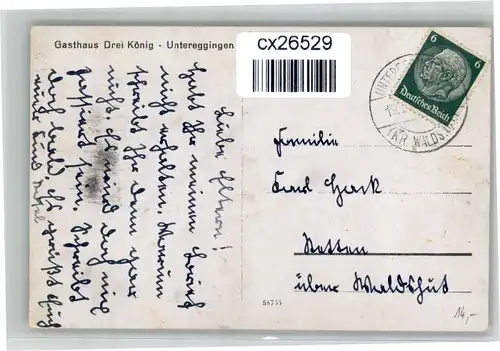 Gasthaus Drei König - Untereggingen
cx26529
6 6
Deutsches Reich
(KR. WALDSH
Liebe Eltern!
Habt Ihr meinen Brief
nicht erhalten. Warum
schreibt Ihr denn gar
nicht. Es wird doch nichts
passiert sein. Schreibt
doch bald. Es grüßt Euch
Familie
Karl Hack
Stetten
über Waldshut
58755
14,-